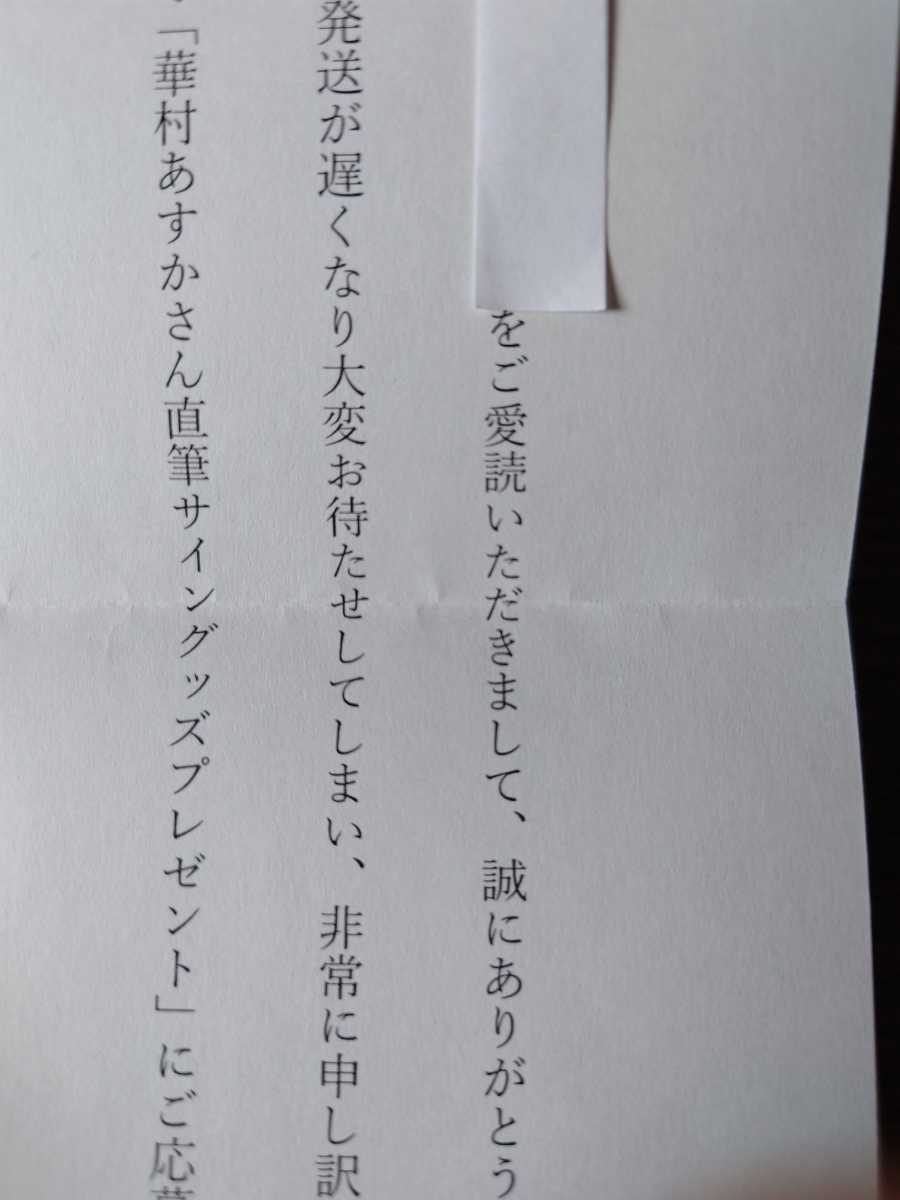 をご愛読いただきまして、誠にありがとう
発送が遅くなり大変お待たせしてしまい、非常に申し訳
「華村あすかさん直筆サイングッズプレゼント」にご応募